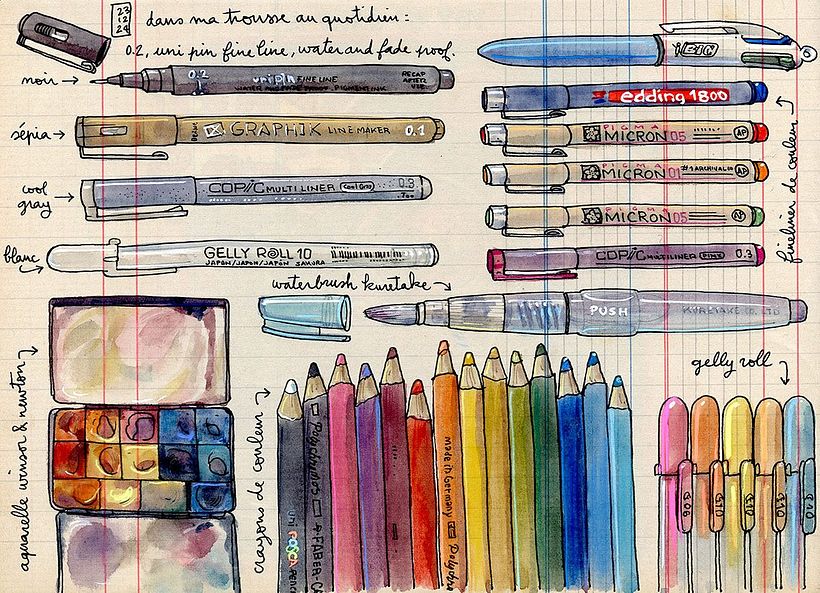 23
12
24
dans ma trousse au quotidien :
0.2, uni pin fine line, water and fade proof.
noir →
0.2 uni pin FINE LINE
WATER AND FADE PROOF, PIGMENT INK
RECAP
AFTER
USE
BIC
edding 1800
sépia →
GRAPHIK LINE MAKER 0.1
PIGMA
MICRON 05
AP
cool
gray →
COPIC MULTILINER Cool Gray 0.3
PIGMA
MICRON 01 ARCHIVAL
AP
PIGMA
MICRON 05
fineliner de couleur
blanc
GELLY ROLL 10
JAPON/JAPAN/JAPÓN SAKURA
COPIC MULTILINER PINK 0.3
waterbrush kuretake
PUSH KURETAKE CO. LTD
aquarelle winsor & newton
crayons de couleur
uni POSCA PENCIL
Polychromos FABER-C
made in Germany Polychro
gelly roll